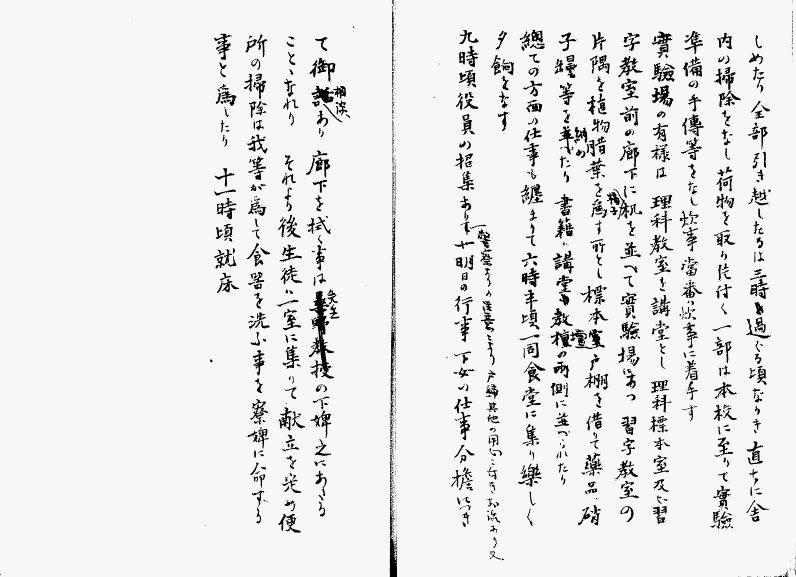 しめたり 全部引き越したるは三時も過ぐる頃なりき 直ちに舎
内の掃除をなし荷物を取り片付く 一部は本校に至りて實驗
準備の手傳等をなし炊事當番ハ炊事に着手す
實驗場の有様は 理科教室を講堂とし 理科標本室及ビ習
字教室前の廊下に机を並べて實驗場にあつ 習字教室の
椅子
片隅を植物腊葉を為す所とし 標本室戸棚を借りて藥品、硝
子類等を並べたり 書籍ハ講堂教壇の両側に並べられたり
納め
總ての方面の仕事も纏まりて六時半頃一同食堂に集り樂しく
夕餉をなす
九時頃役員の招集あり 明日の行事 下女の仕事分擔につき
て御話あり 廊下を拭く事は教授の下婢之にあたる
相談
先生
こととなれり それより後生徒ハ一室に集りて献立を定め便
所の掃除は我等が為して食器を洗ふ事を寮婢に命ずる
事と為したり 十一時頃就床